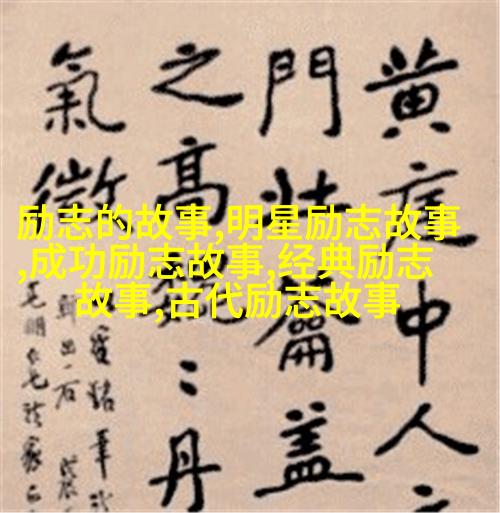 励志的故事,明星励志故事
,成功励志故事,经典励志
故事,古代励志故事
黄庭中人
門壮籥盖
之高巍〻丹
氣微